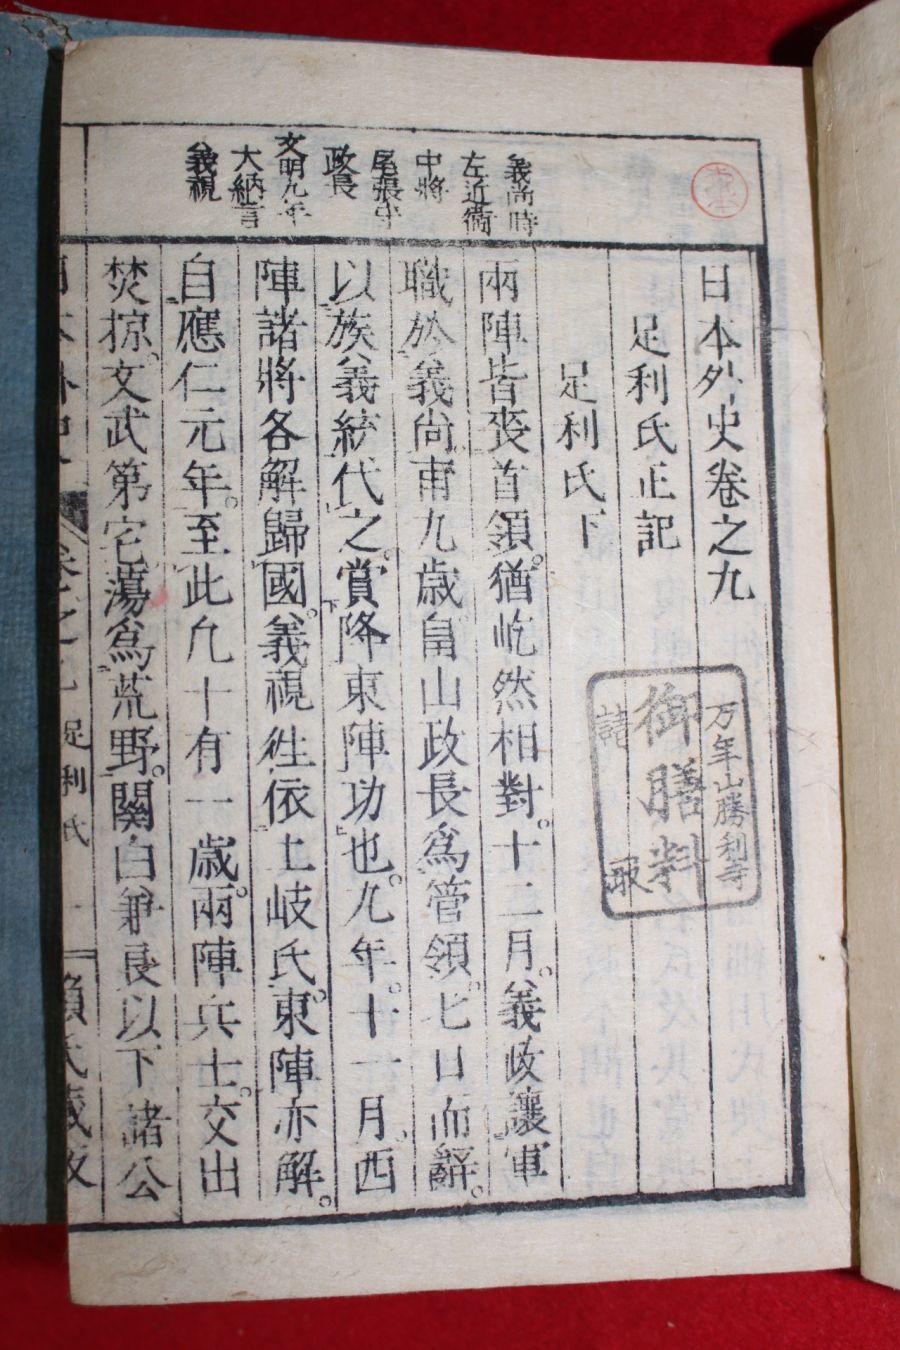 義尚時
左近衞
中將
尾張守
政長
文明九年
大納言
義視
日本外史卷之九
足利氏正記
足利氏下
兩陣皆喪首領。猶屹然相對。十二月。義政讓軍
職於義尚。甫九歲。畠山政長爲管領。七日而辭。
以族義統代之。賞降東陣功也。九年。十一月。西
陣諸將各解歸國。義視往依土岐氏。東陣亦解。
自應仁元年。至此凡十有一歲。兩陣兵士。交出
焚掠。文武第宅蕩爲荒野。關白兼良以下諸公
足利氏
一
賴氏藏
万年山勝利寺
御膳料